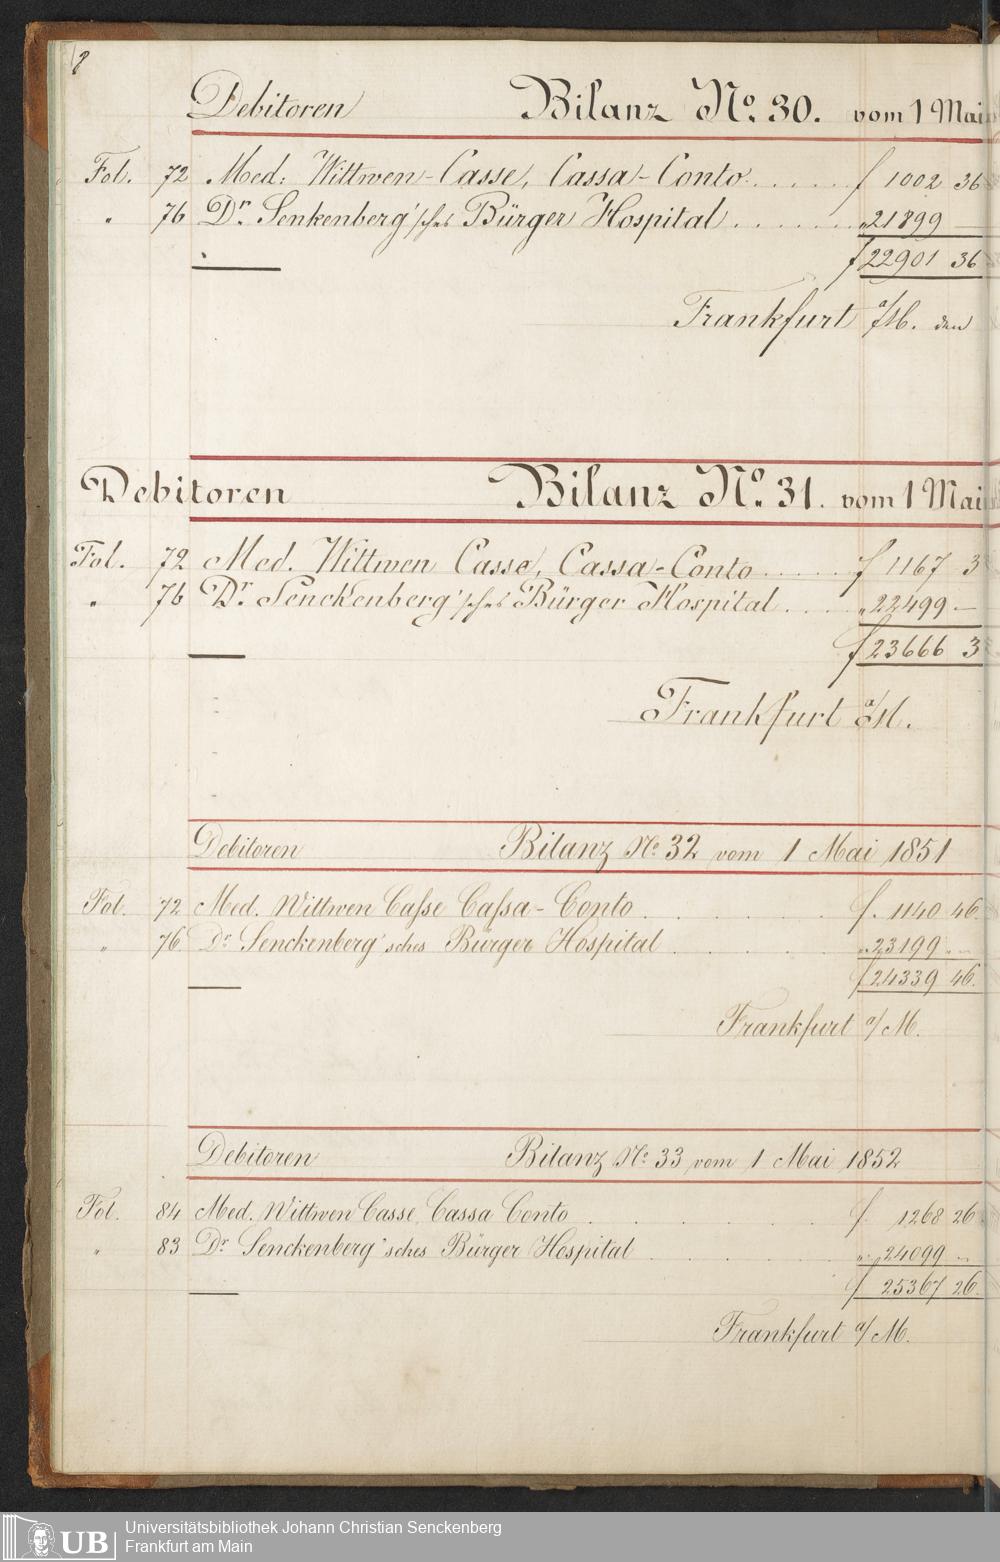 8
Debitoren Bilanz No. 30. vom 1 Mai
Fol. 72 Med: Wittwen-Casse, Cassa-Conto. . . . . . f 1002 36
" 76 Dr. Senkenberg'sches Bürger Hospital . . . . . . . " 21899 —
f 22901 36
Frankfurt a/M. den
Debitoren Bilanz No. 31. vom 1 Mai
Fol. 72 Med. Wittwen Casse, Cassa-Conto . . . . . . f 1167 3
" 76 Dr. Senckenberg'sches Bürger Hospital . . . . " 22499 —
f 23666 3
Frankfurt a/M.
Debitoren Bilanz No. 32 vom 1 Mai 1851
Fol. 72 Med. Wittwen Casse Cassa-Conto . . . . . f. 1140 46.
" 76 Dr. Senckenberg'sches Bürger Hospital . . . . . " 23199 " —
f 24339 46.
Frankfurt a/M.
Debitoren Bilanz No. 33 vom 1 Mai 1852
Fol. 84 Med. Wittwen Casse, Cassa Conto . . . . . . f. 1268 26
" 83 Dr. Senckenberg'sches Bürger Hospital . . . . . " 24099 —
f 25367 26.
Frankfurt a/M.
UB Universitätsbibliothek Johann Christian Senckenberg
Frankfurt am Main